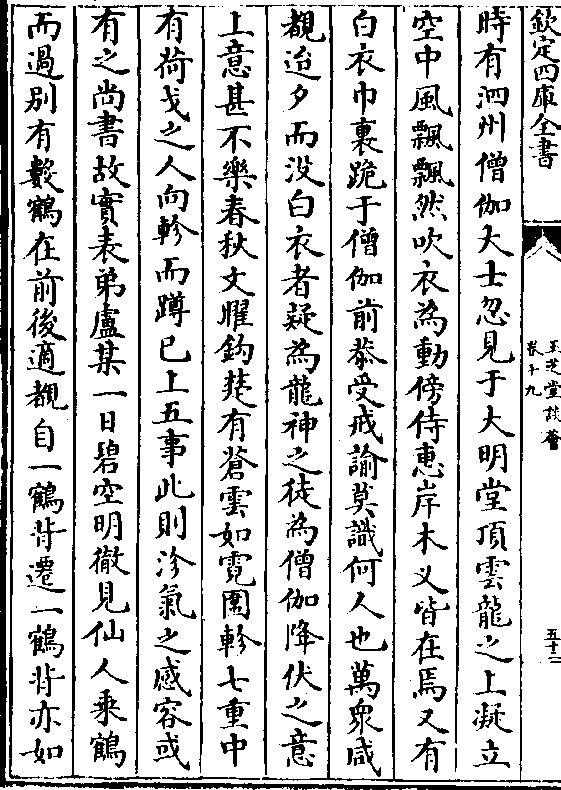 欽定四庫全書
玉芝堂談薈
卷十九
五十二
時有泗州僧伽大士忽見于大明堂頂雲龍之上凝立
空中風飄飄然吹衣為動傍侍惠岸木义皆在焉又有
白衣巾裹跪于僧伽前恭受戒諭莫識何人也萬衆咸
覩迨夕而没白衣者疑為龍神之徒為僧伽降伏之意
上意甚不樂春秋文耀鈎楚有蒼雲如霓圍軫七重中
有荷戈之人向軫而蹲已上五事此則沴氣之感容或
有之尚書故實表弟盧某一日碧空明徹見仙人乘鶴
而過别有數鶴在前後適覩自一鶴背遷一鶴背亦如